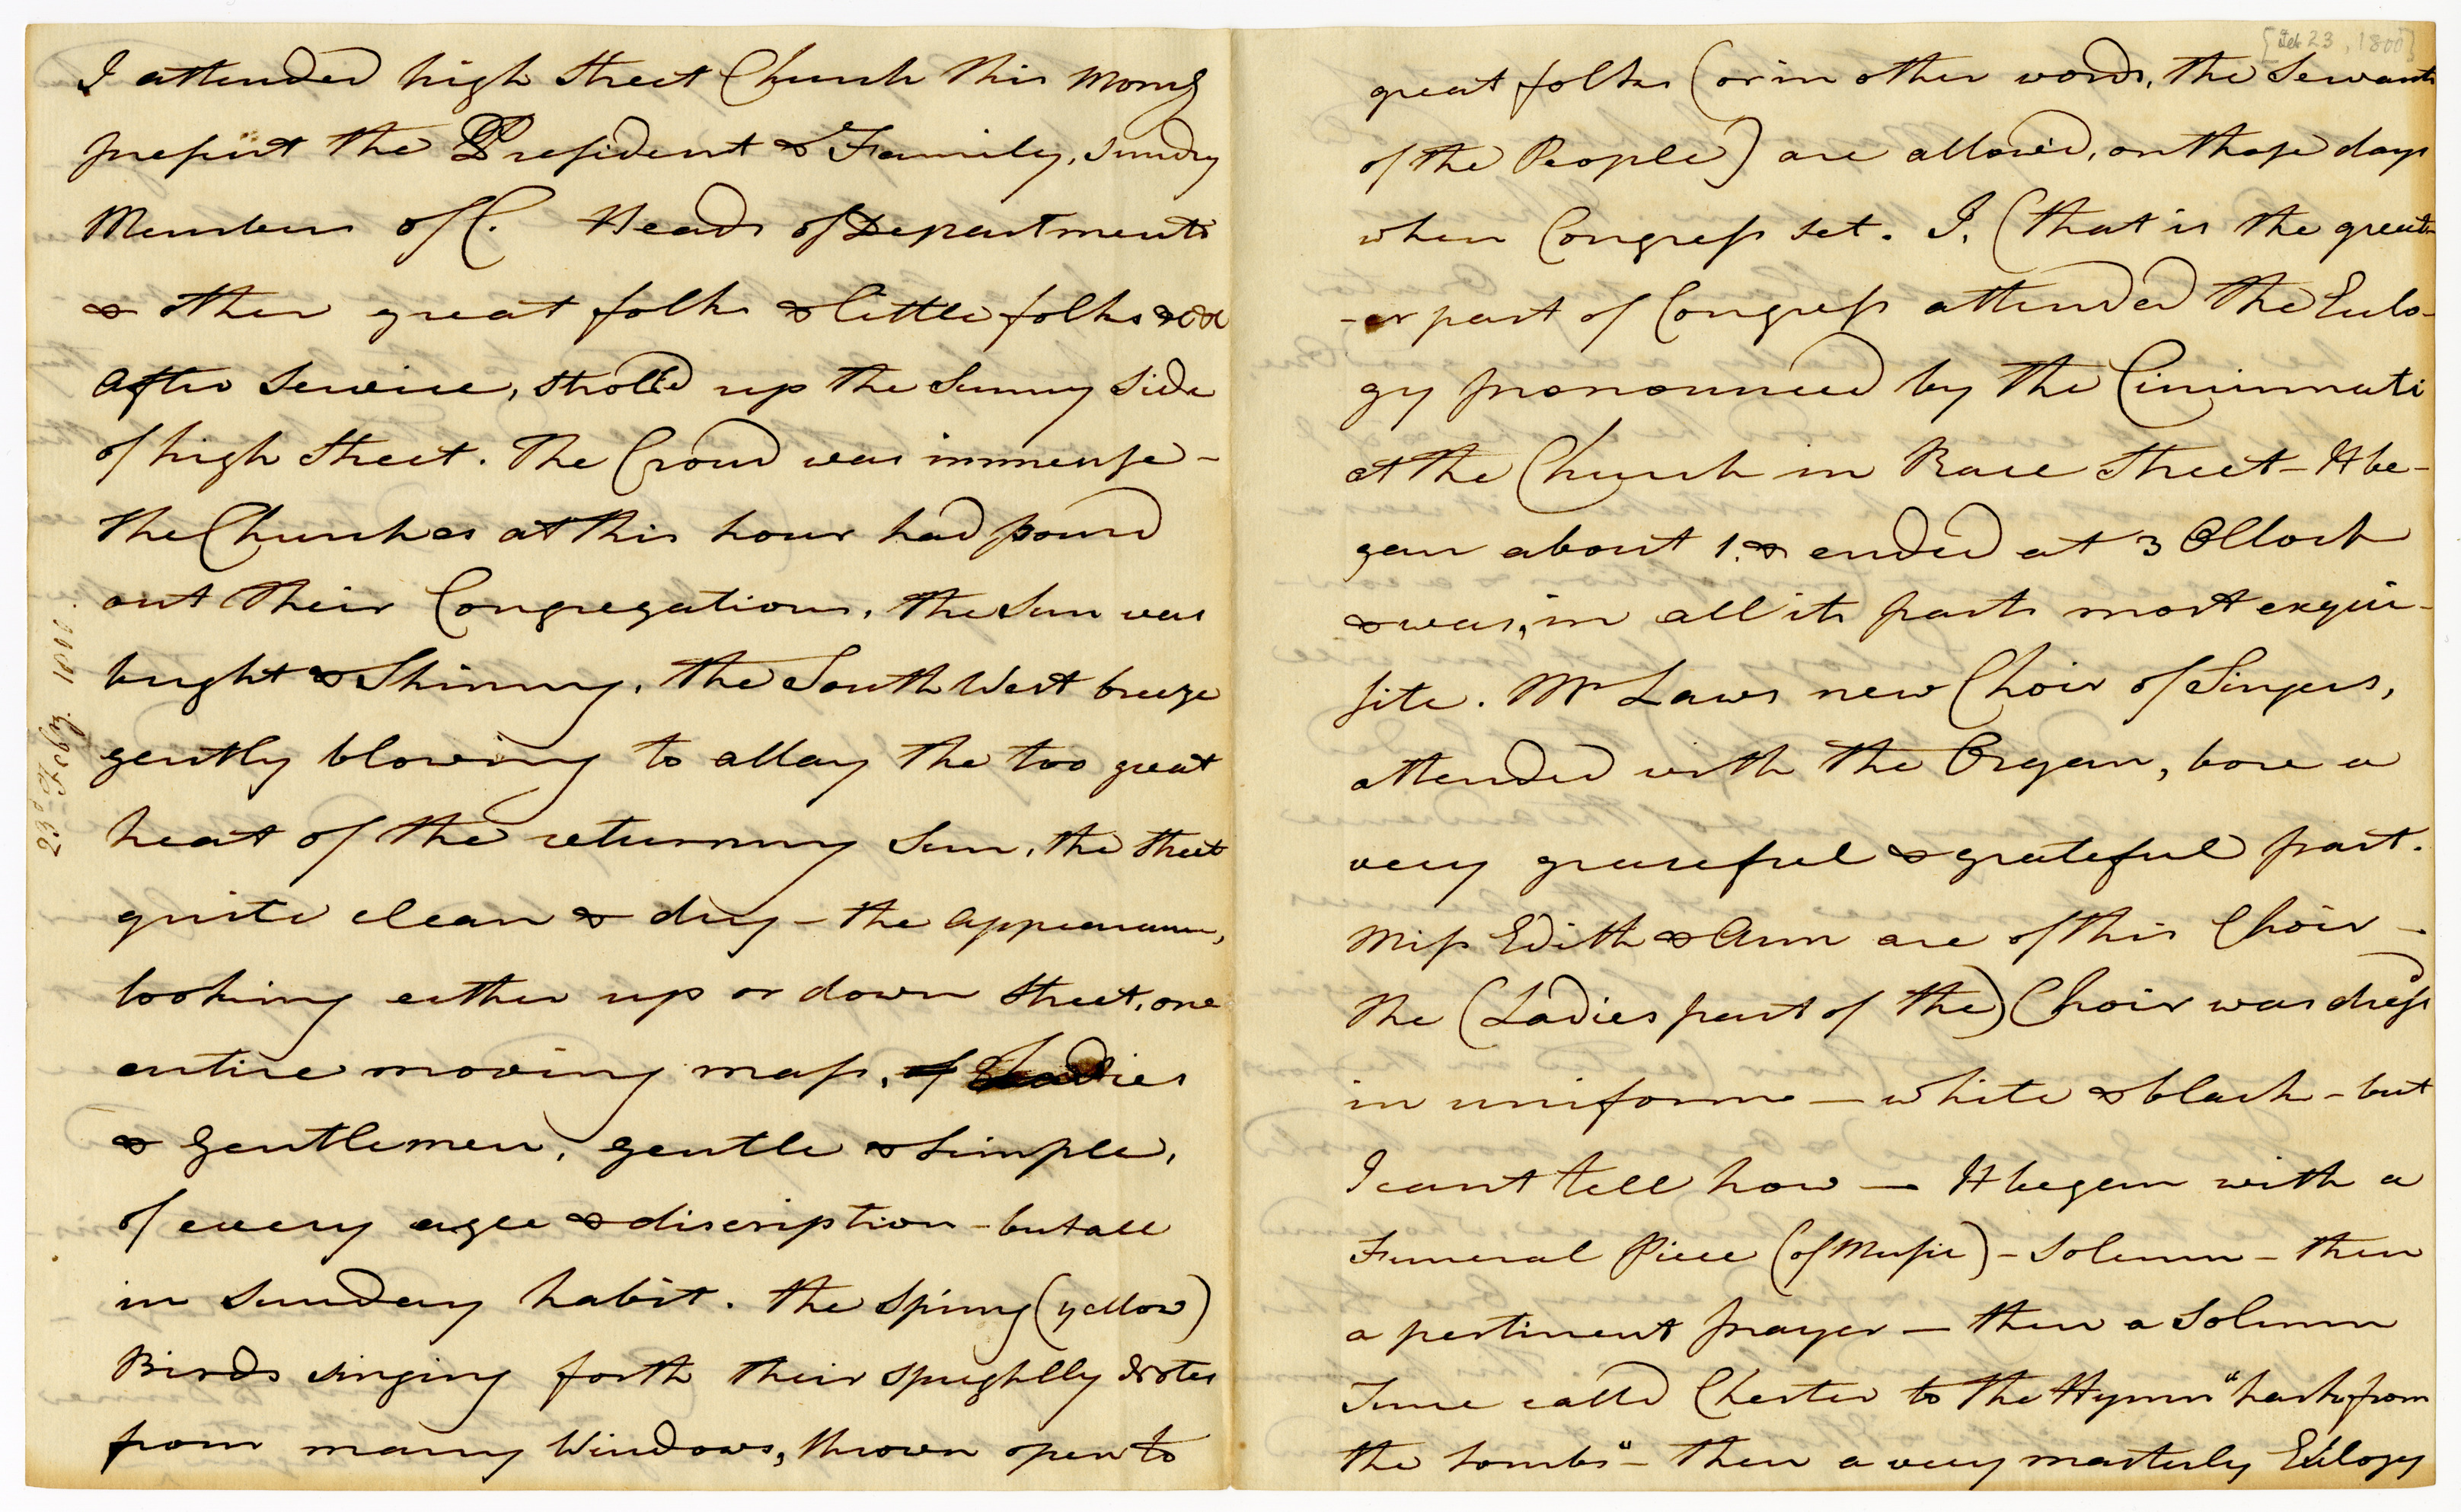 I attended high Street Church this Morng
present the President & Family, sundry
Members of C. Heads of Departments
& other great folks & little folks &c &c
After Service, stroll'd up the Sunny Side
of high Street. The Croud was immense -
the Churches at this hour had pourd
out their Congregations, the Sun was
bright & Shining, the South West breeze
gently blowing to allay the too great
heat of the returning Sun, the Street
quite clean & dry - the appearance,
looking either up or down Street, one
entire moving mass, of Ladies
& Gentlemen, gentle & simple,
of every agee & discription - but all
in Sunday habit. the Spring (yellow)
Birds singing forth their sprightly Notes
from many Windows, thrown open to
23d Feby. 1800.
[Feb 23, 1800]
great folks (or in other words, the Servants
of the People) are allow'd, on those days
when Congress set. I, (that is the great-
-er part of Congress attended the Eulo-
gy pronounced by the Cininnati
at the Church in Race Street - It be-
gan about 1. & ended at 3 OClock
& was, in all its parts most exqui-
site. Mr Laws new Choir of Singers,
attended with the Organ, bore a
very graceful & grateful part.
Miss Edith & Ann are of this Choir -
the (Ladies part of the) Choir was dress'd
in uniform - white & black - but
I cant tell how - It began with a
Funeral Piece (of Music) - Solemn - then
a pertinent prayer - then a Solemn
Tune calld Chester to the Hymn "hark from
the tombs" - then a very masterly Eulogy